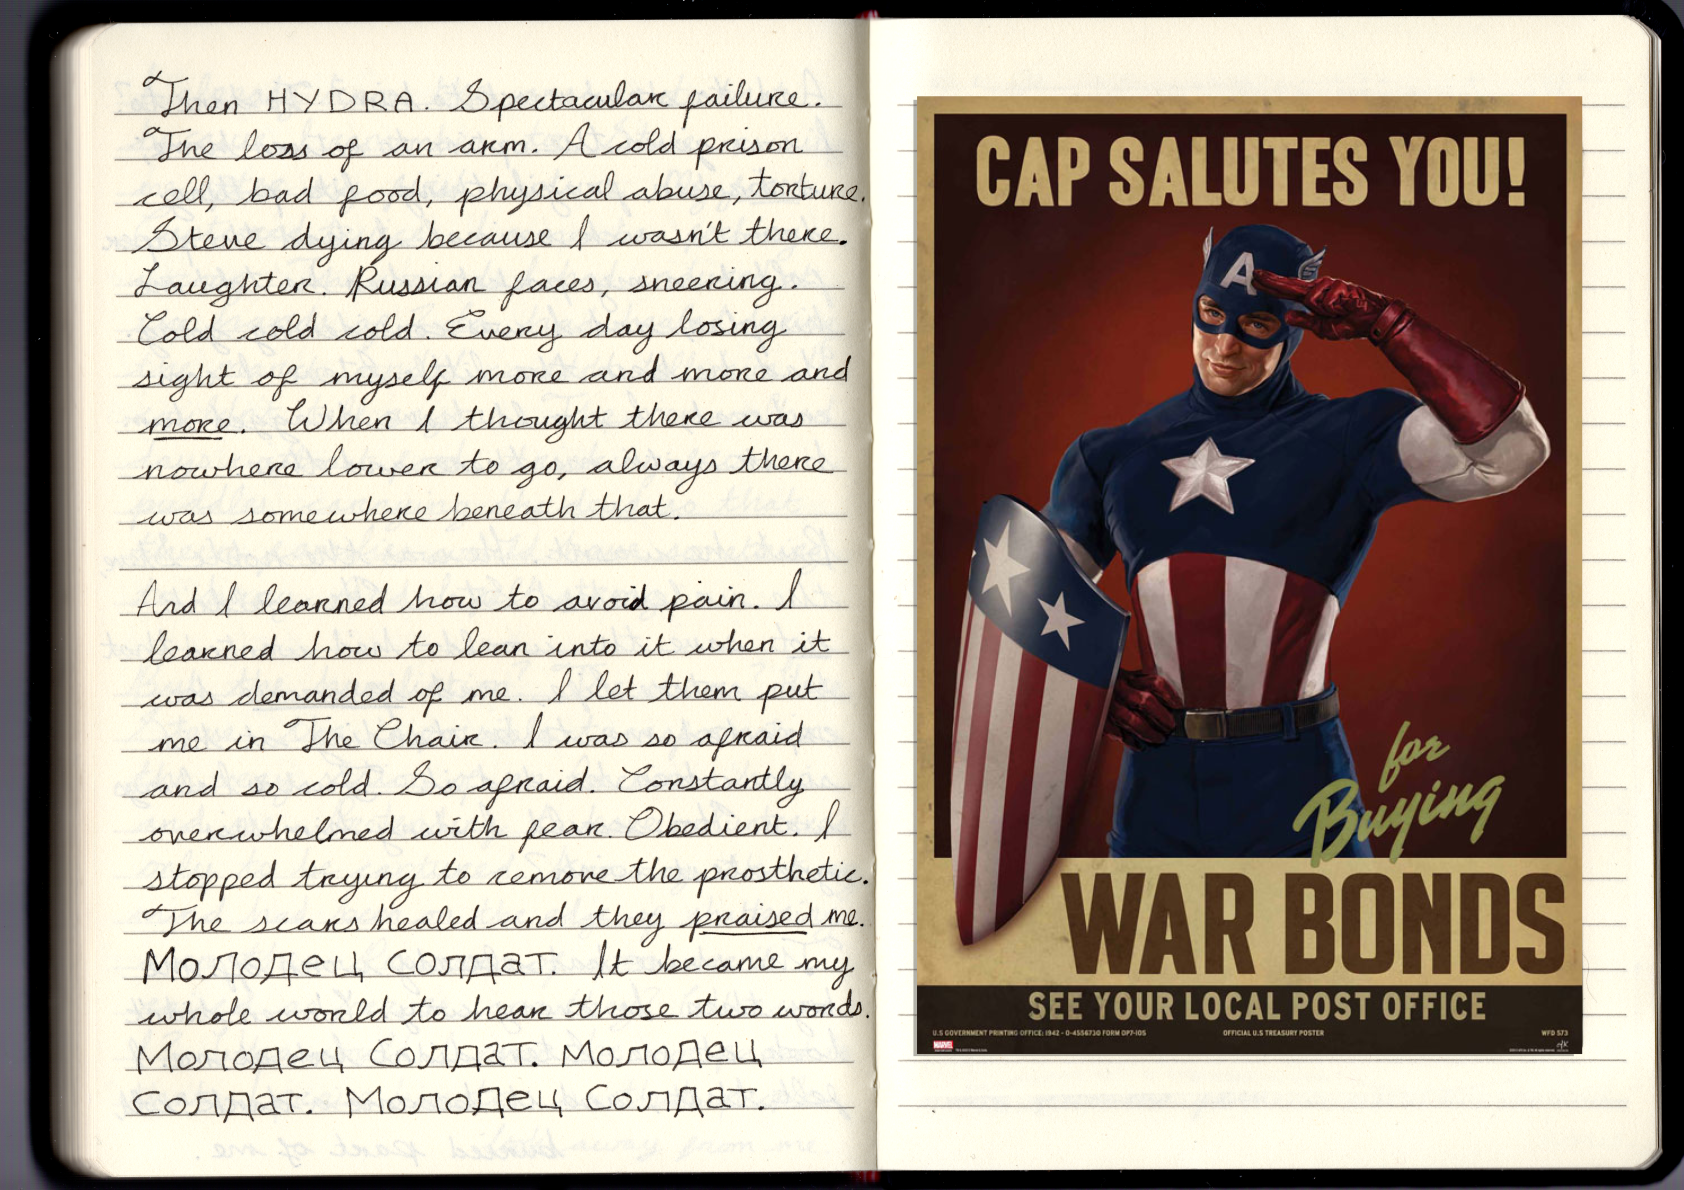 Then HYDRA. Spectacular failure.
The loss of an arm. A cold prison
cell, bad food, physical abuse, torture.
Steve dying because I wasn't there.
Laughter. Russian faces, sneering.
Cold cold cold. Every day losing
sight of myself more and more and
more. When I thought there was
nowhere lower to go, always there
was somewhere beneath that.
And I learned how to avoid pain. I
learned how to lean into it when it
was demanded of me. I let them put
me in The Chair. I was so afraid
and so cold. So afraid. Constantly
overwhelmed with fear. Obedient. I
stopped trying to remove the prosthetic.
The scars healed and they praised me.
Молодец Солдат. It became my
whole world to hear those two words.
Молодец Солдат. Молодец
Солдат. Молодец Солдат.
CAP SALUTES YOU!
A
for
Buying
WAR BONDS
SEE YOUR LOCAL POST OFFICE
U.S GOVERNMENT PRINTING OFFICE: 1942 - O-4556730 FORM DP7-10S
OFFICIAL U.S TREASURY POSTER
WFD 573
MARVEL